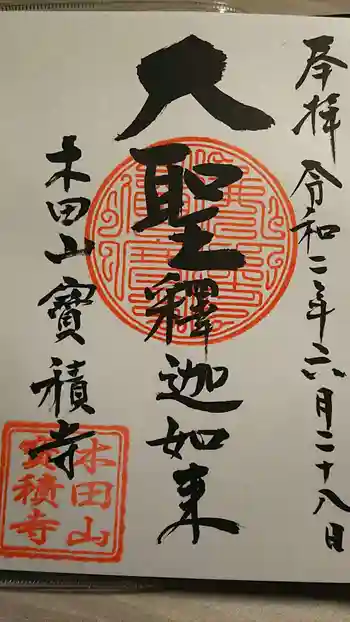 奉拝 令和二年六月二十八日
大聖釋迦如来
木田山寳積寺
木田山
寳積寺